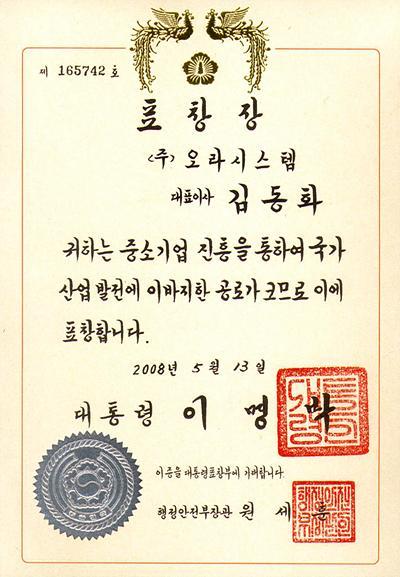 제 165742 호
표 창 장
(주) 오라시스템
대표이사 김동화
귀하는 중소기업 진흥을 통하여 국가
산업 발전에 이바지한 공로가 크므로 이에
표창합니다.
2008년 5월 13일
대통령 이 명 박
이 증을 대통령표창부에 기재합니다.
행정안전부장관 원 세 훈